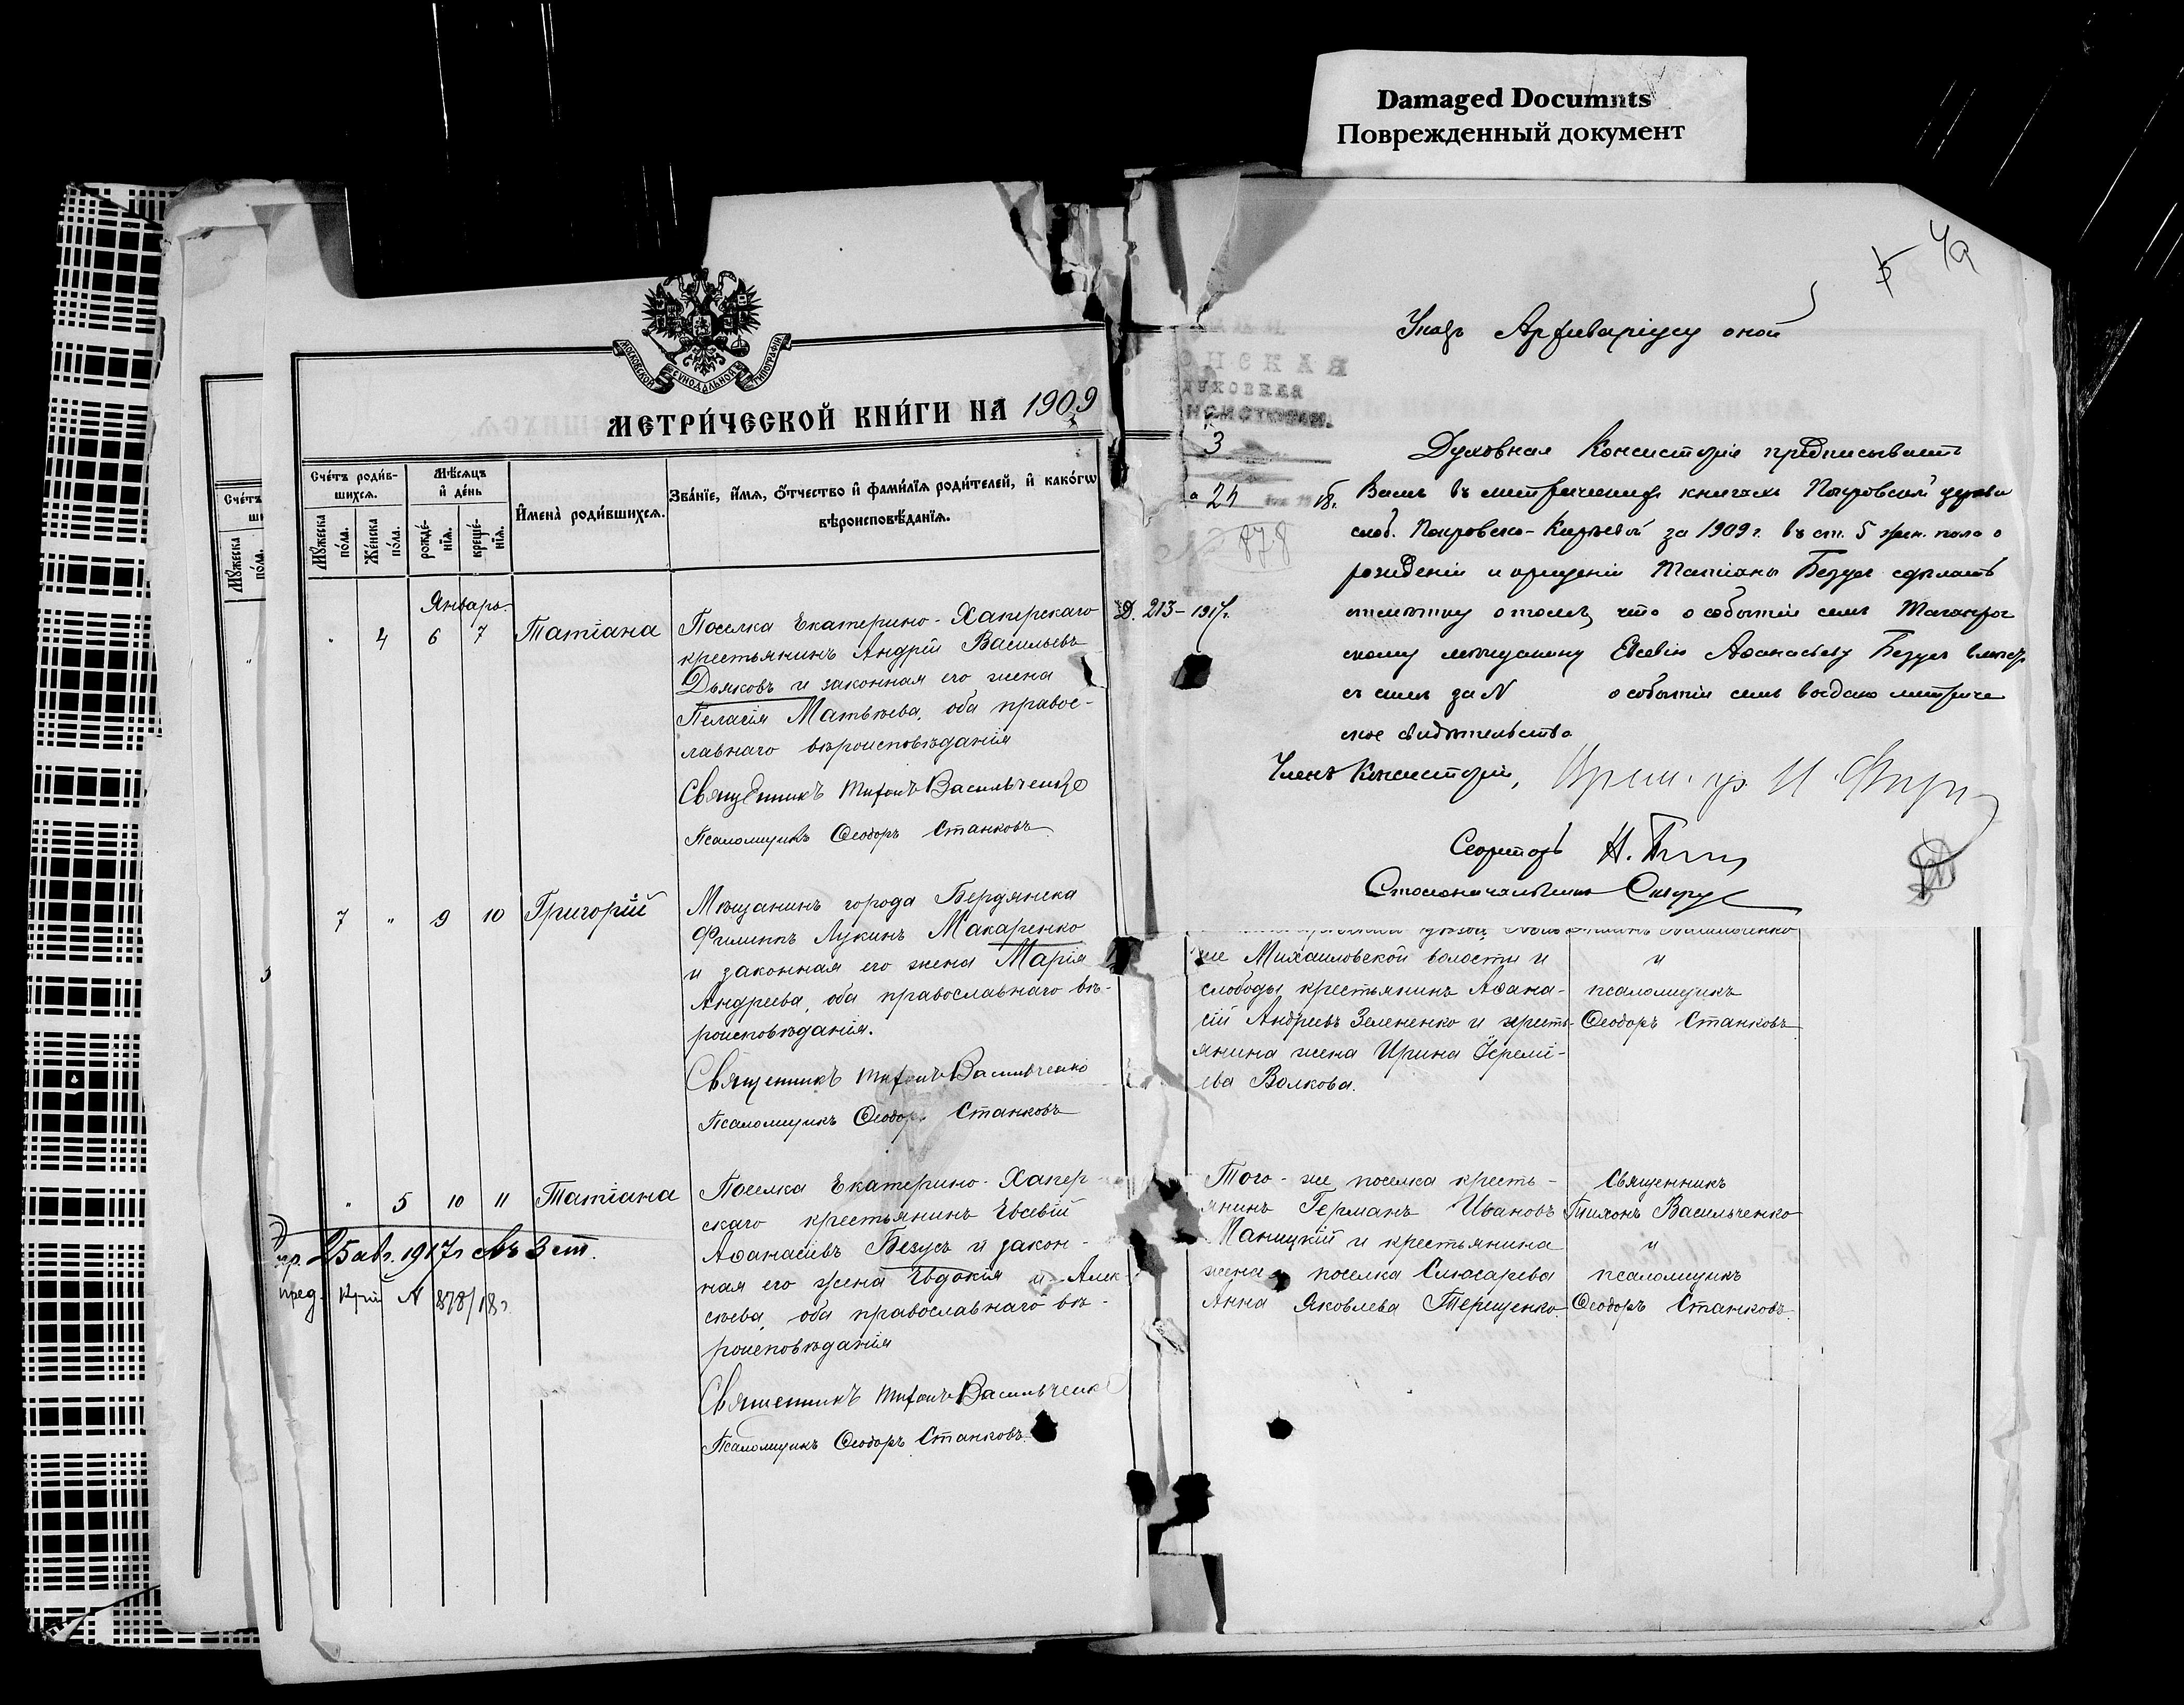 Damaged Documnts
Поврежденный документ
МОСКОВСКОЙ СУНОДАЛЬНОЙ ТИПОГРАФІИ
МЕТРИ́ЧЕСКОЙ КНИ́ГИ НА 1909
Сче́тъ роди́в-
шихся.
Мѣ́сяцъ
и҆ де́нь
Мꙋ́жеска по́ла.
Же́нска по́ла.
рожде́-
нїя.
креще́-
нїя.
И҆мена̀ роди́вшихся.
Зва́нїе, и҆́мя, ѻ҆́тчество и҆ фами́лїя роди́телей, и҆ како́гѡ
вѣроисповѣ́данїя.
Январь.
" 4 6 7 Татіана
Поселка Екатерино-Хаперскаго
крестьянинъ Андрій Васильевъ
Дьяковъ и законная его жена
Пелагія Матвѣева, оба правос-
лавнаго вѣроисповѣданія
Священникъ Тихонъ Васильченко
Псаломщикъ Ѳеодоръ Станковъ
7 " 9 10 Григорій
Мѣщанинъ города Бердянска
Филиппъ Лукинъ Макаренко
и законная его жена Марія
Андреева, оба православнаго вѣ-
роисповѣданія.
Священникъ Тихонъ Васильченко
Псаломщикъ Ѳеодоръ Станковъ
" 5 10 11 Татіана
Поселка Екатерино-Хапер
скаго крестьянинъ Евсевій
Аѳанасіевъ Безусъ и закон-
ная его жена Евдокія Алек
сѣева, оба православнаго вѣ-
роисповѣданія
Священникъ Тихонъ Васильченк
Псаломщикъ Ѳеодоръ Станковъ
25 авг. 1917 г. 3 ст.
пред. N 878/18 г.
4а
Указъ Архиваріусу оной
ДУХОВНАЯ
3
24 18 г.
878
Д. 213 - 1917 г.
Духовная Консисторія предписываетъ
Вамъ въ метрическихъ книгахъ Покровской церкви
слоб. Покровско-Кирѣевой за 1909 г. въ ст. 5 жен. пола о
рожденіи и крещеніи Татіаны Безусъ сдѣлать
отмѣтку о томъ, что о событіи семъ Таганрог
скому мѣщанину Евсевію Аѳанасьеву Безусъ
съ симъ за N о событіи семъ выдано метриче
ское свидѣтельство
Членъ Консисторіи,
Секретарь Н.
Столоначальникъ
же Михаиловской волости и
слободы крестьянинъ Аѳана-
сій Андреевъ Зелененко и кресть-
янина жена Ирина Іеремі-
ева Волкова.
Васильченко
и
псаломщикъ
Ѳеодоръ Станковъ
Того-же поселка кресть-
янинъ Германъ Ивановъ
Паницкій и крестьянина
жена поселка Слюсарева
Анна Яковлева Терещенко.
Священникъ
Тихонъ Васильченко
и
псаломщикъ
Ѳеодоръ Станковъ.